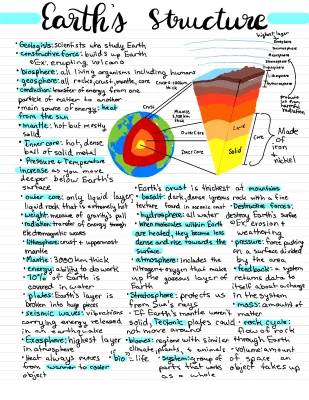 Earth's Structure
• Geologists: scientists who study Earth
• constructive force: builds up Earth
Ex. erupting volcano
• biosphere: all living organisms including humans
• geosphere: all rocks, crust, mantle, core
• conduction: transfer of energy from one
particle of matter to another
• main source of energy: heat
from the sun
• mantle: hot but mostly
solid
• Inner core: hot, dense
ball of solid metal
• Pressure + Temperature
increase as you move
deeper below Earth's
surface
• outer core: only liquid layer
liquid rock that is extremely hot
• weight: measure of gravity's pull
• radiation: transfer of energy through
electromagnetic waves
• lithosphere: crust + uppermost
mantle
• Mantle: 3000 km thick
• energy: ability to do work
• 70% of Earth is
covered in water
• plates: Earth's layer is
broken into huge pieces
• seismic waves: vibrations
carrying energy released
in an earthquake
• Exosphere: highest layer
in atmosphere
• Heat always moves
from warmer to cooler
object
highest layer
Exosphere
Thermosphere
Mesosphere
Stratosphere
Troposphere
protects us
from harmful
radiation
Crust
Mantle
Outer Core
Inner Core
Liquid
Solid
Core
Made
of
iron
+
Nickel
• Earth's crust is thickest at mountains
• basalt: dark, dense igneous rock with a fine
texture found in oceanic crust
• hydrosphere: all water
• When molecules within Earth
are heated, they become less
dense and rise towards the
surface.
• atmosphere: includes the
nitrogen + oxygen that make
up the gaseous layer of
Earth
• Stratosphere: protects us
from Sun's rays
• If Earth's mantle weren't
solid, tectonic plates could
not move around
• biomes: regions with similar
climate, plants, + animals
• bio = life
• System: group of
parts that works
as a whole
• Destructive forces:
destroy Earth's surface
Ex. erosion +
weathering
• pressure: force pushing
on a surface divided
by the area
• feedback: a system
returns data to
itself about a change
in the system
• mass: amount of
matter
• rock cycle:
flow of rock
through Earth
• Volume: amount
of space an
object takes up